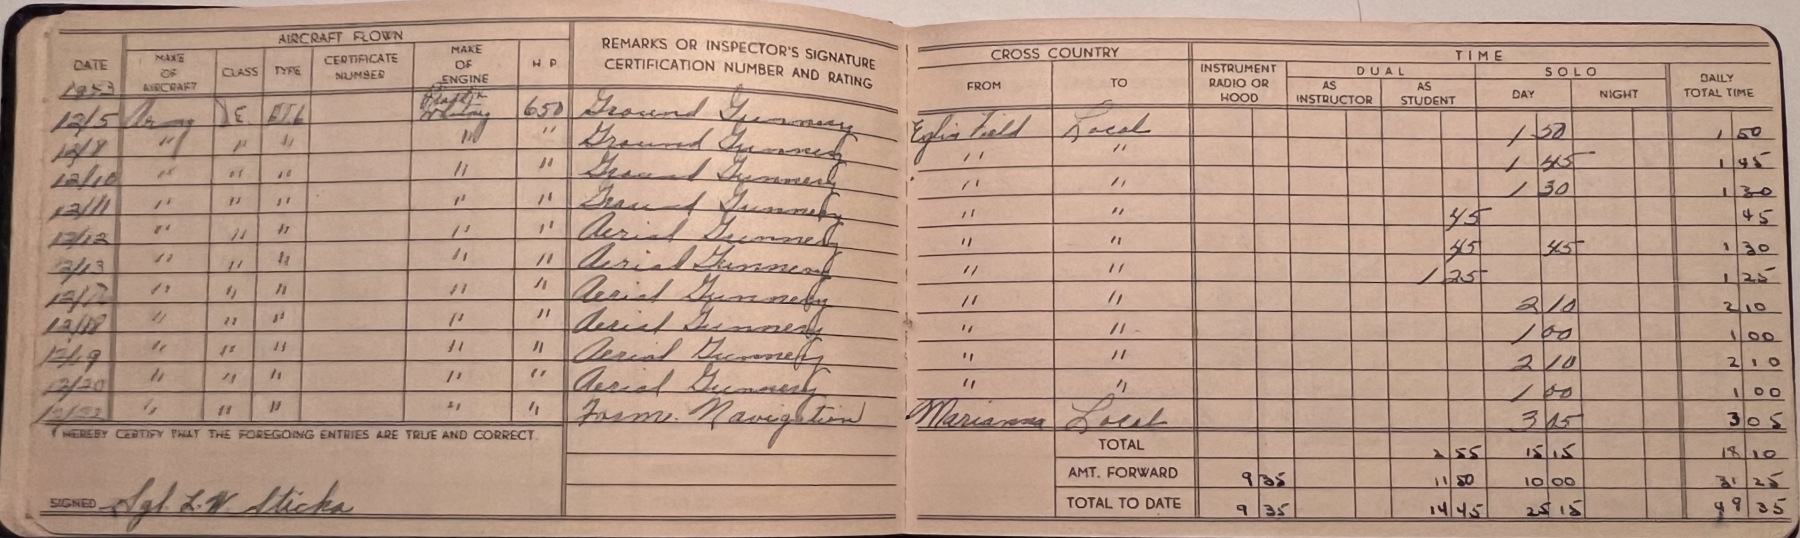 AIRCRAFT FLOWN
DATE MAKE OF AIRCRAFT CLASS TYPE CERTIFICATE NUMBER MAKE OF ENGINE H P REMARKS OR INSPECTOR'S SIGNATURE CERTIFICATION NUMBER AND RATING
CROSS COUNTRY
FROM TO
TIME
INSTRUMENT RADIO OR HOOD
DUAL
AS INSTRUCTOR AS STUDENT
SOLO
DAY NIGHT
DAILY TOTAL TIME
12/5 Army E Whitney 650 Ground Gunnery Eglin Field Local 1 50 1 50
12/8 " " " " " Ground Gunnery " " 1 45 1 45
12/10 " " " " " Ground Gunnery " " 1 30 1 30
12/11 " " " " " Ground Gunnery " " 45 45
12/12 " " " " " Aerial Gunnery " " 45 45 1 30
12/13 " " " " " Aerial Gunnery " " 1 25 1 25
" " " " " Aerial Gunnery " " 2 10 2 10
12/18 " " " " " Aerial Gunnery " " 1 00 1 00
12/19 " " " " " Aerial Gunnery " " 2 10 2 10
12/20 " " " " " Aerial Gunnery " " 1 00 1 00
" " " " " Navigation Marianna Local 3 05 3 05
I HEREBY CERTIFY THAT THE FOREGOING ENTRIES ARE TRUE AND CORRECT.
SIGNED Sgt. L. W. Sticka
TOTAL 2 55 15 15 18 10
AMT. FORWARD 9 35 11 50 10 00 31 25
TOTAL TO DATE 9 35 14 45 25 15 49 35